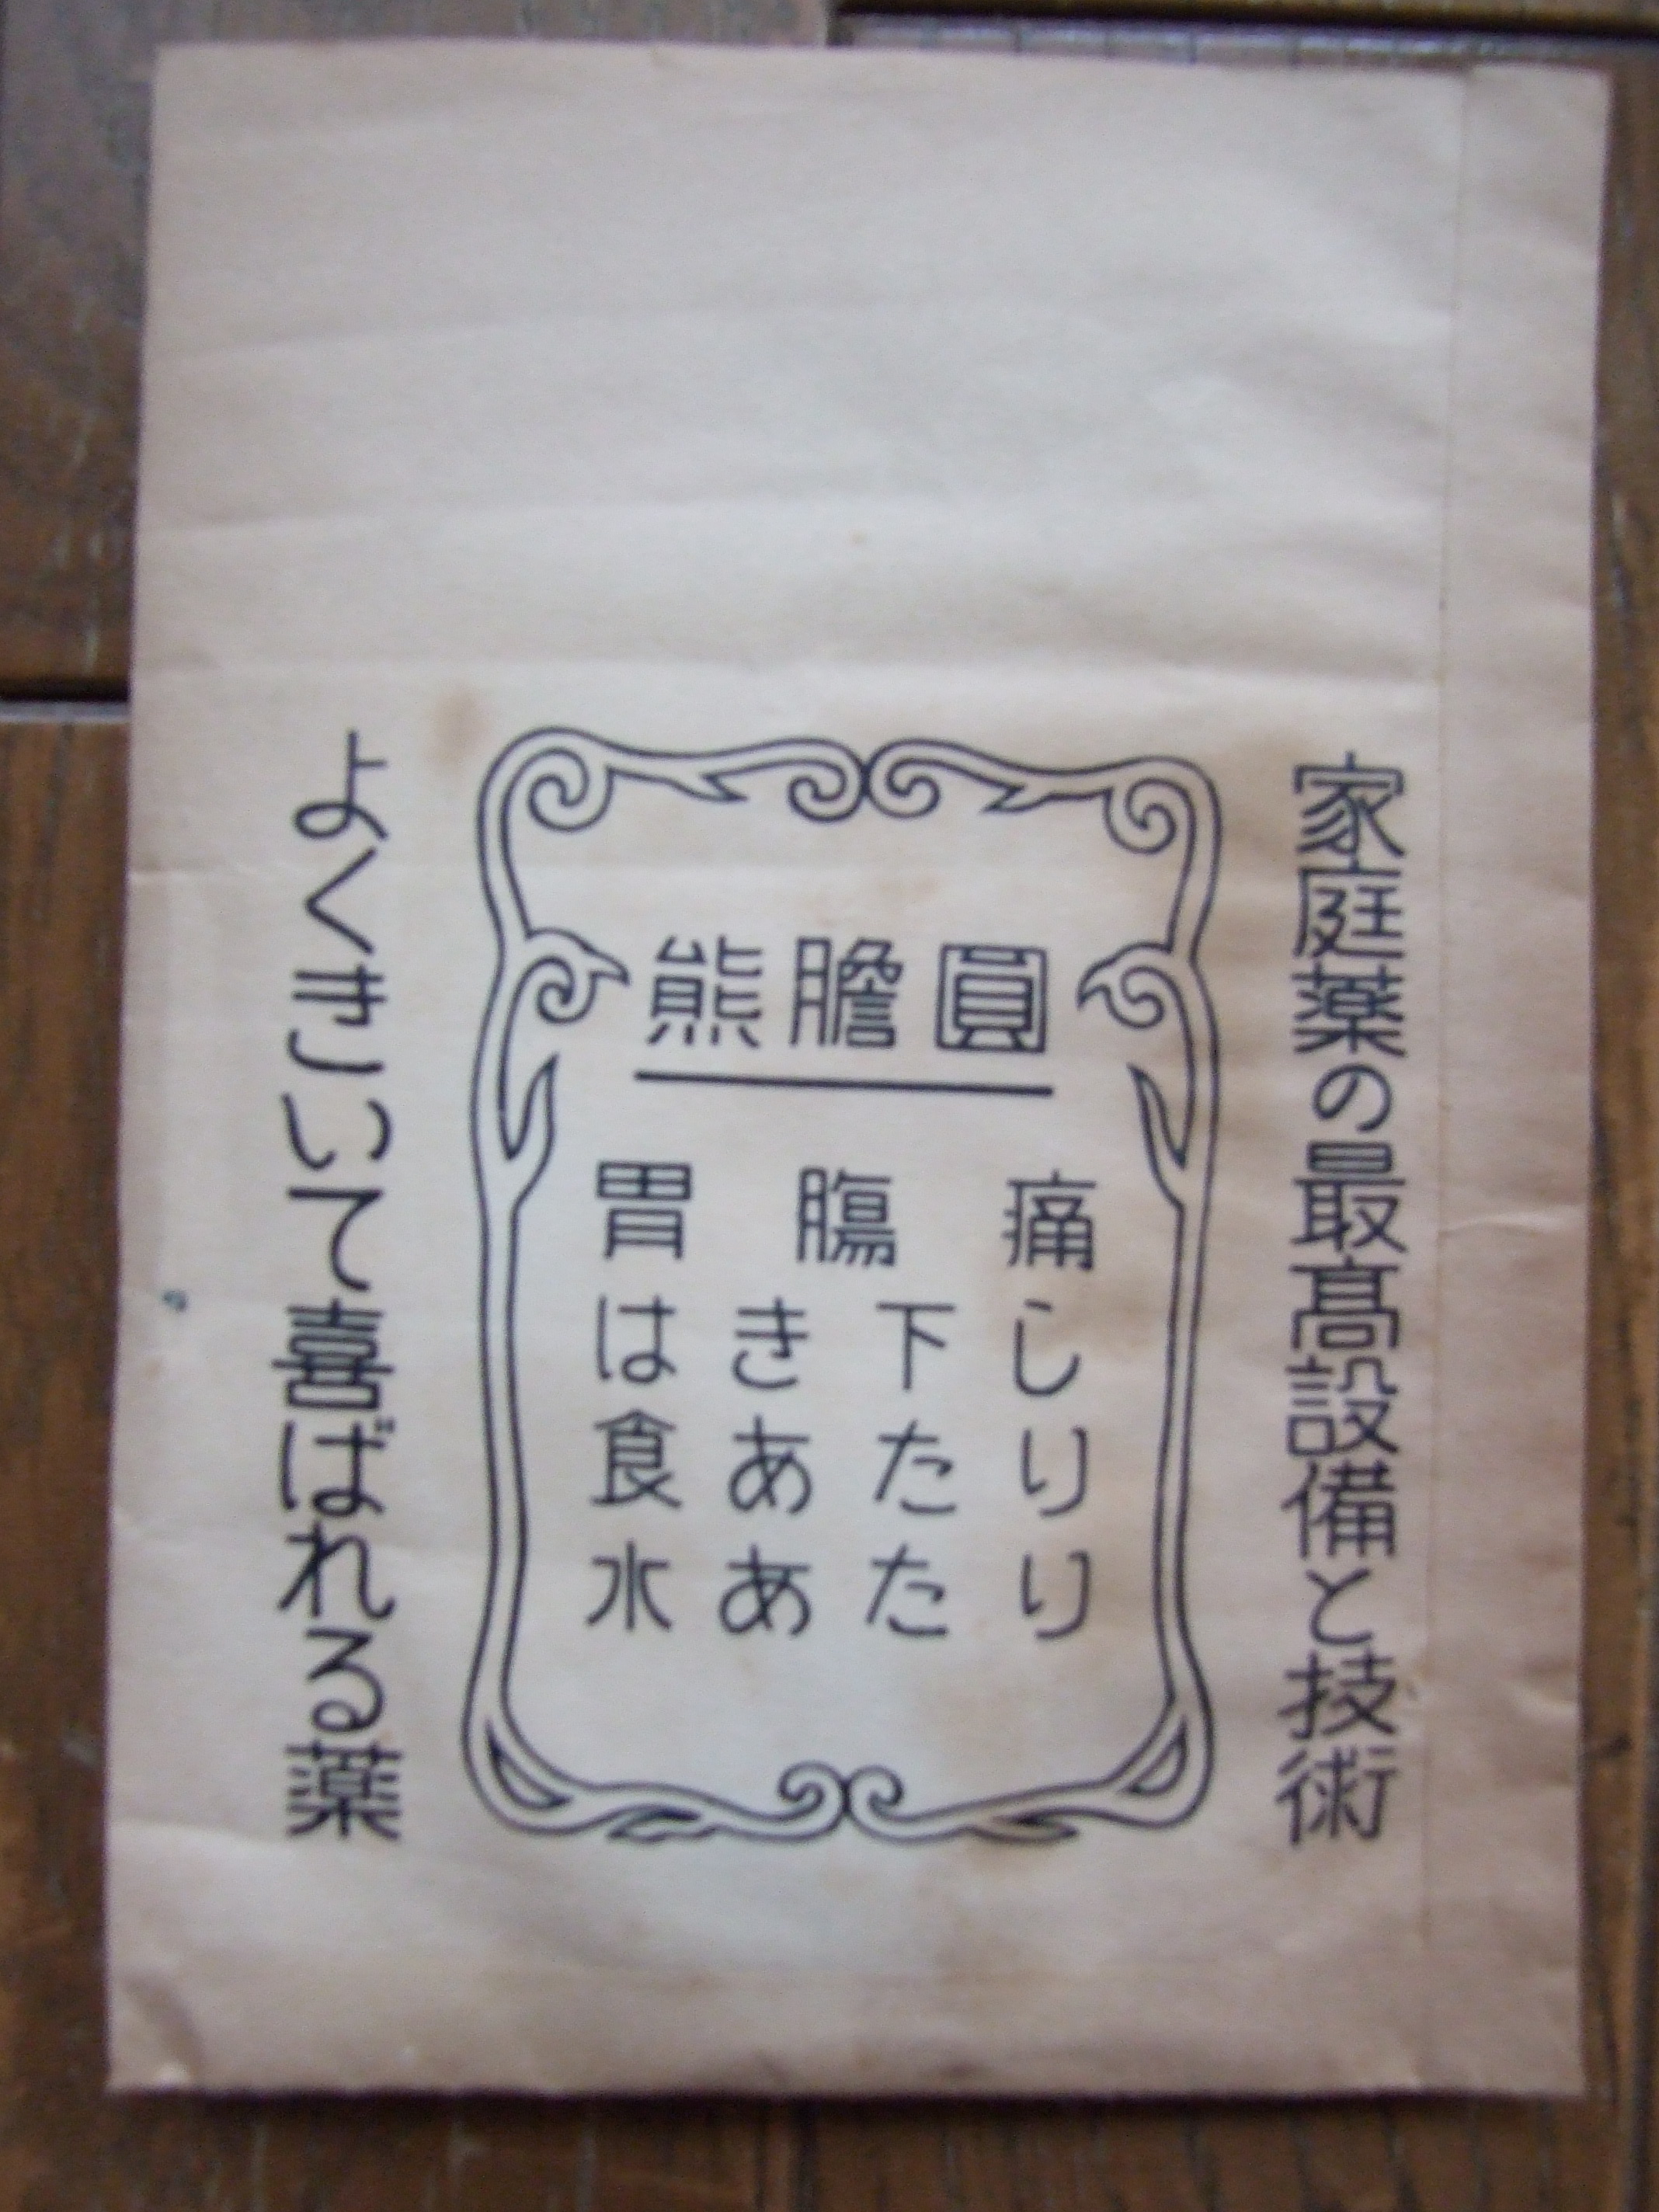 家庭薬の最髙設備と技術
熊膽圓
胃膓痛
はき下し
食あたり
水あたり
よくきいて喜ばれる薬